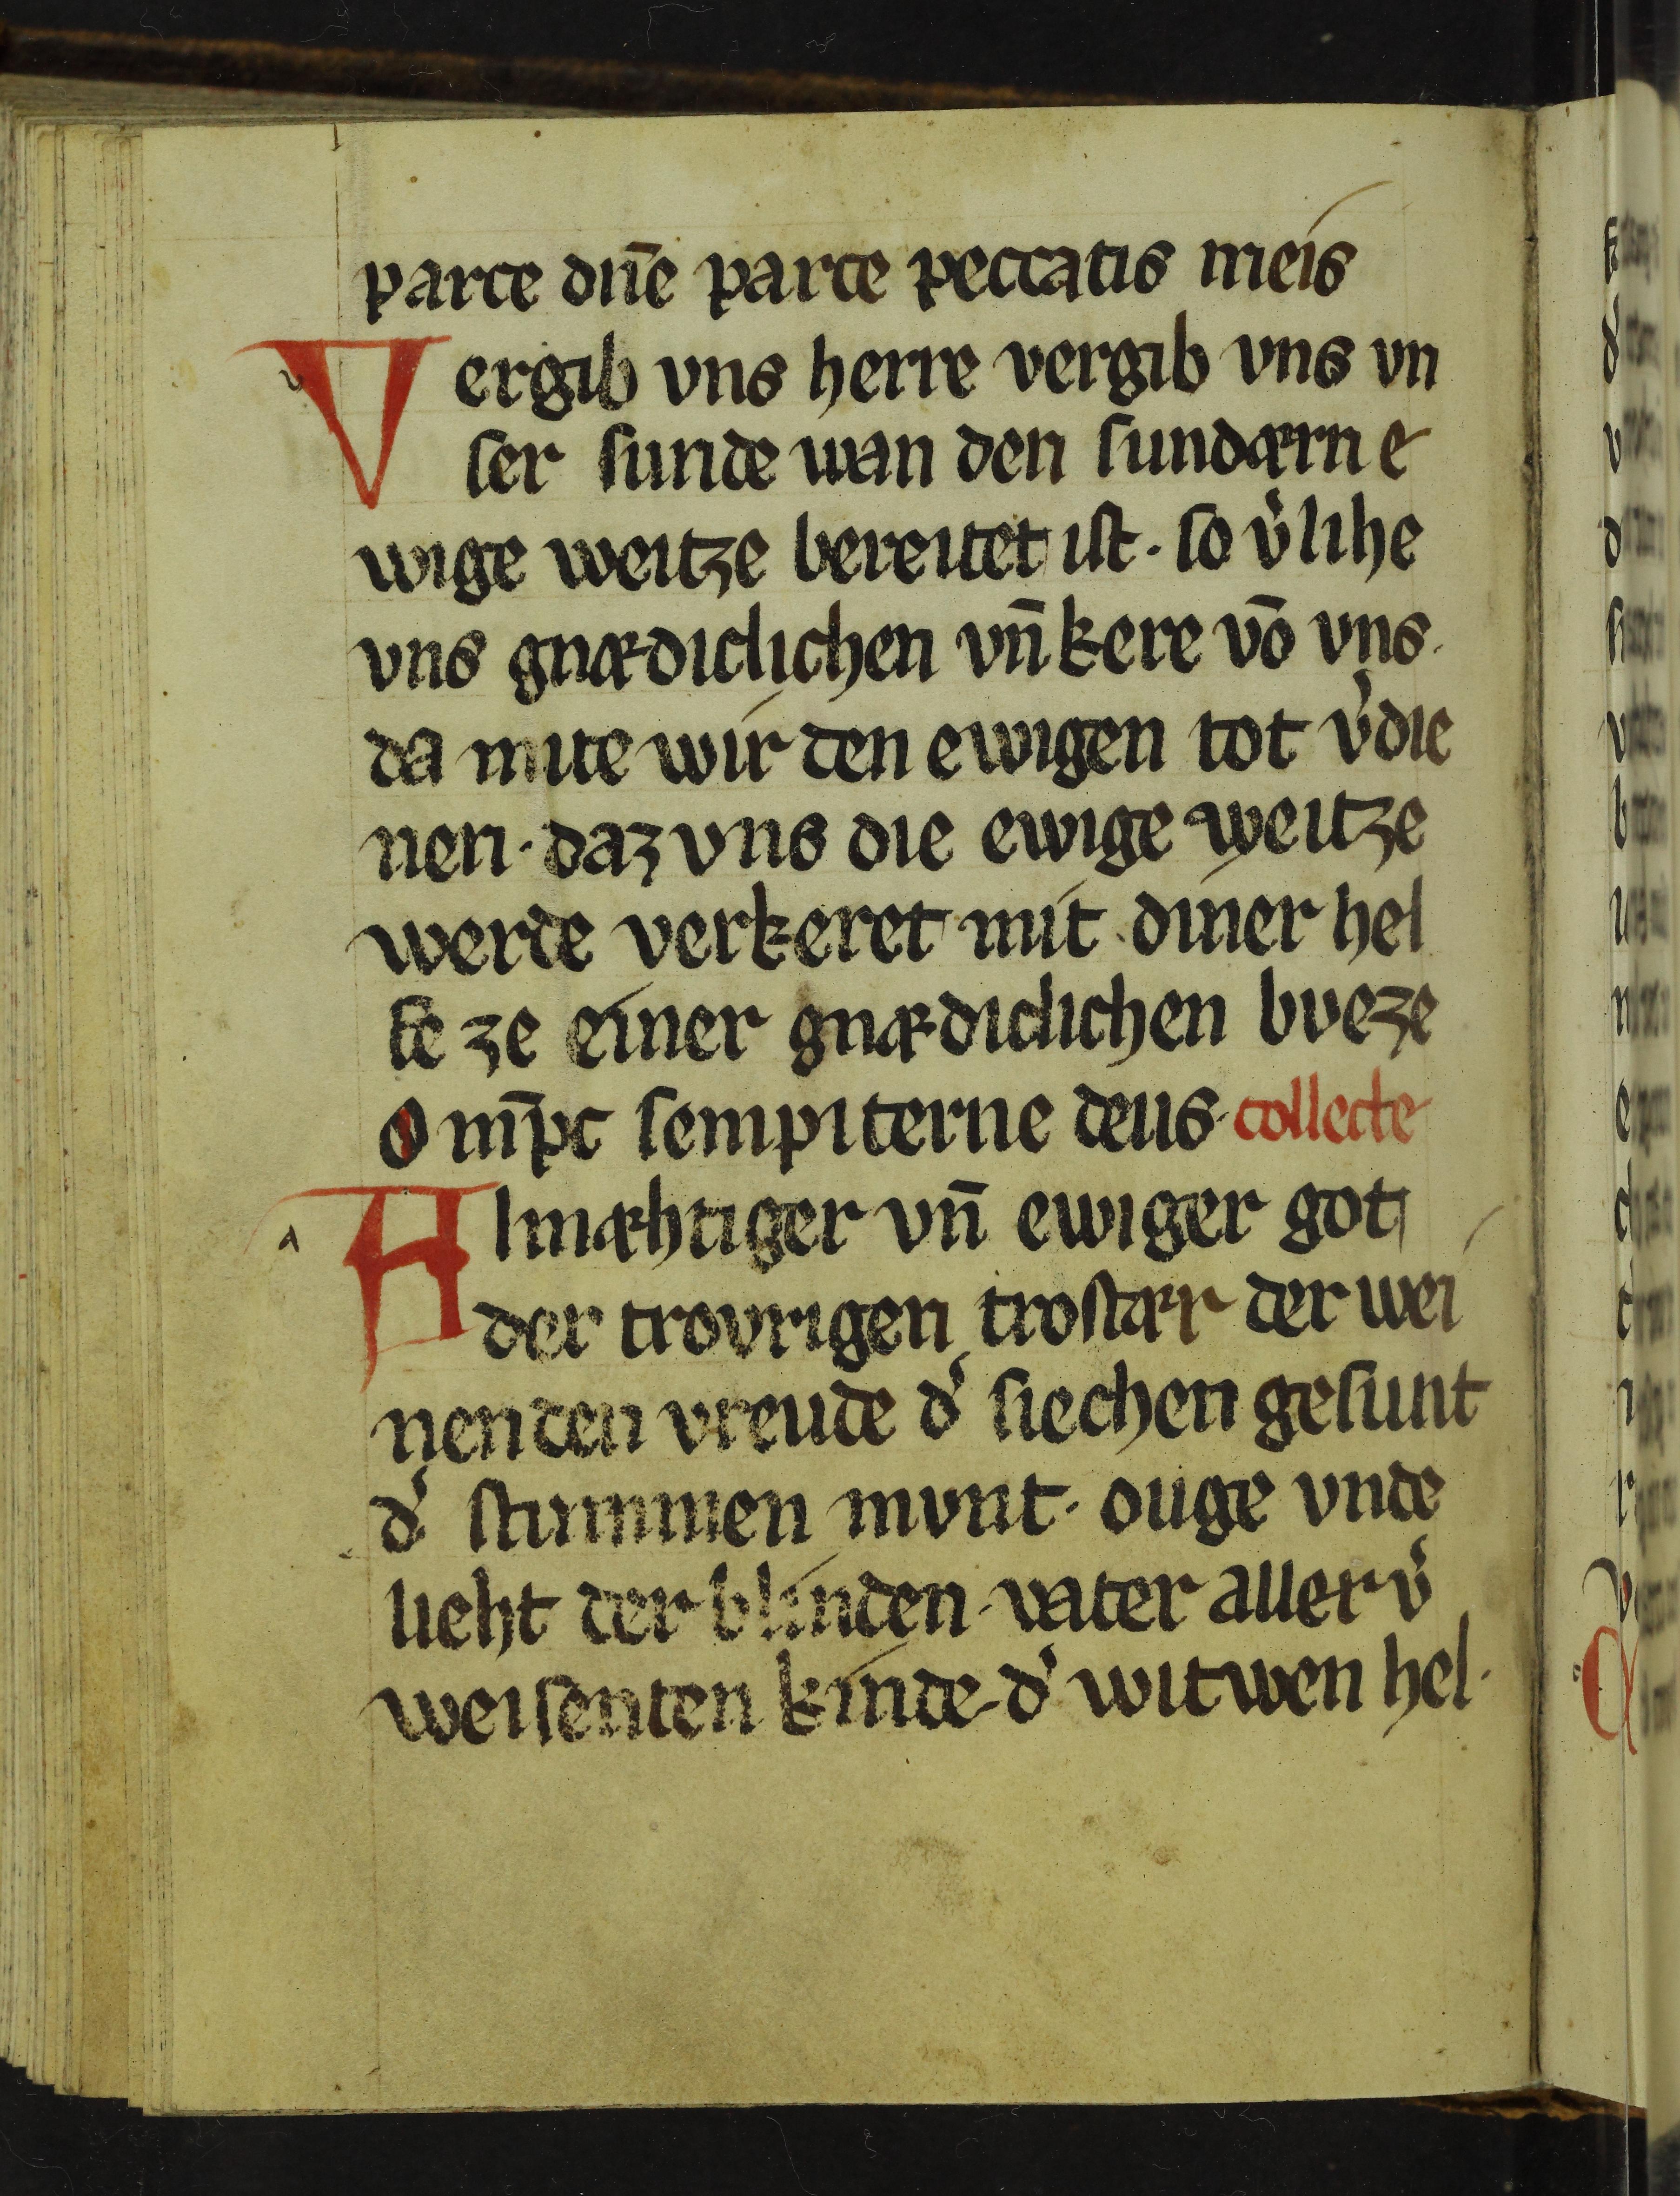 parce dn̄e parce peccatis meis
Vergib vns herre vergib vns vn
ſer ſunde wan den ſundærn e
wige weitze bereitet iſt · ſo v͛lihe
vns gnædiclichen vn̄ kere vō vns ·
da mite wir den ewigen tot v͛die
nen · daz vns die ewige weitze
werde verkeret mit diner hel
fe ze einer gnædiclichen bveze
om̄pc ſempiterne deus · collecte
Almæhtiger vn̄ ewiger got
der trovrigen troſtær der wei
nenden vreude d͛ ſiechen geſunt
d͛ ſtummen mvnt · ouge vnde
lieht der blinden · vater aller v͛
weiſenten kinde · d͛ witwen hel ·